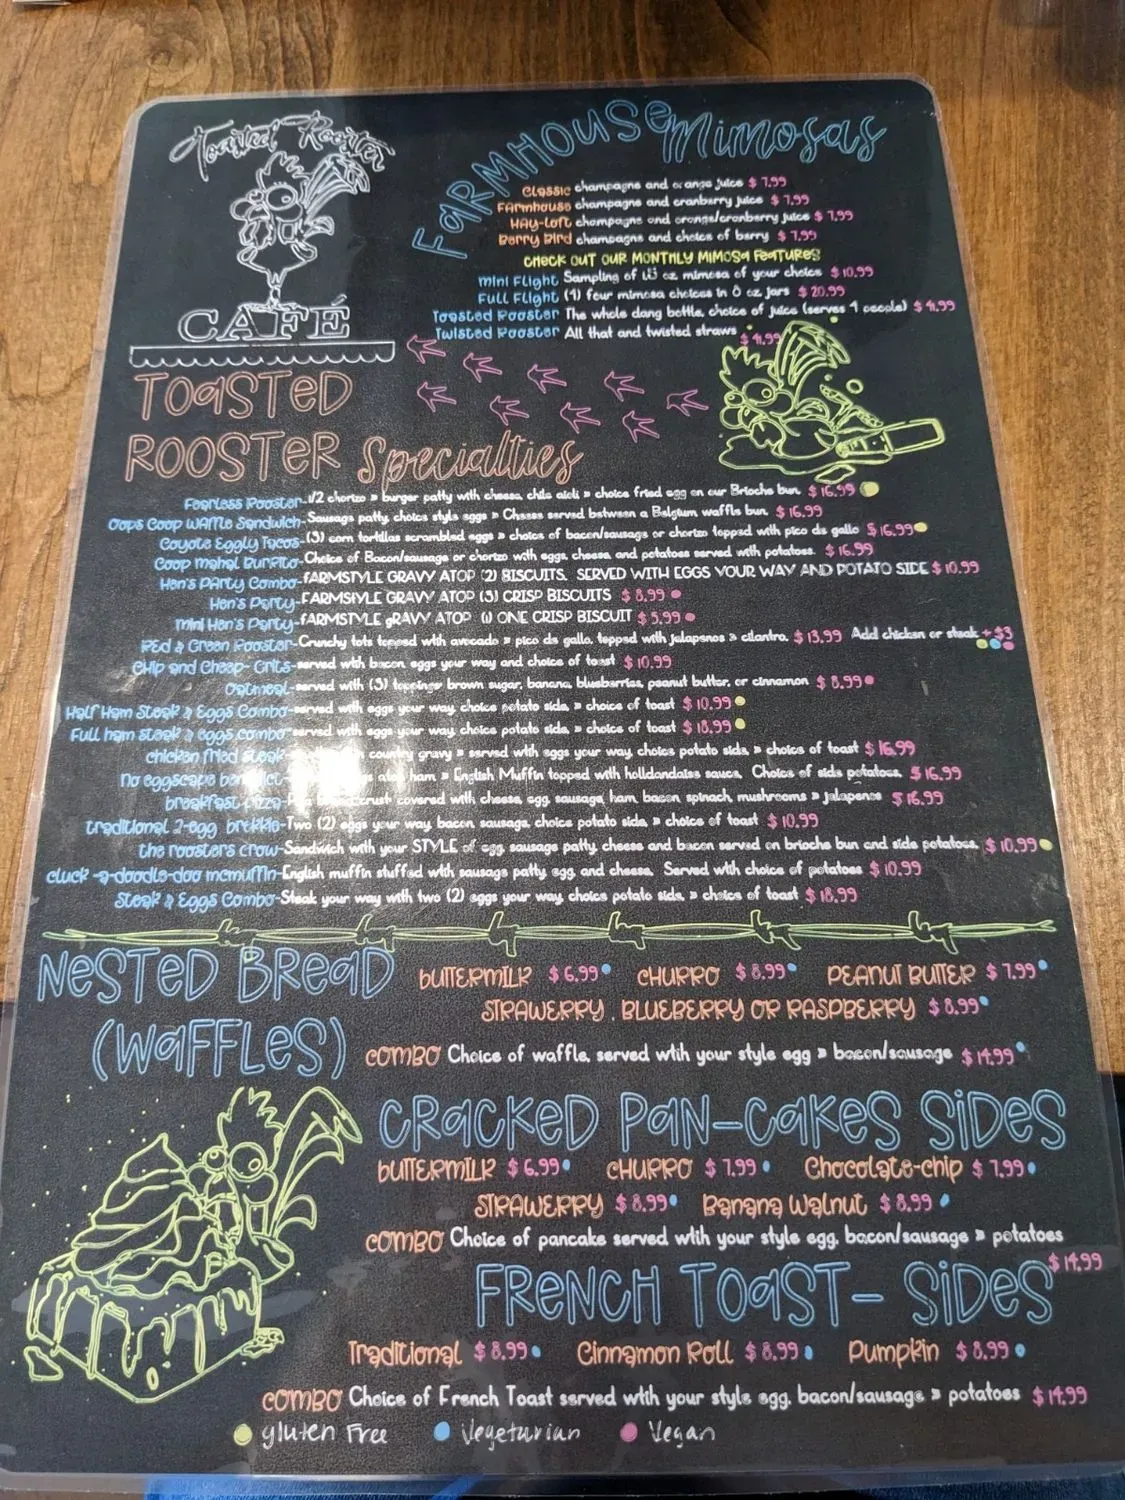 Toasted Rooster
CAFÉ
FARMHOUSE Mimosas
Classic champagne and orange juice $ 7.99
Farmhouse champagne and cranberry juice $ 7.99
Hay-Loft champagne and orange/cranberry juice $ 7.99
Berry Bird champagne and choice of berry $ 7.99
CHECK OUT OUR MONTHLY MIMOSA FEATURES
Mini Flight Sampling of oz mimosa of your choice $ 10.99
Full Flight (4) four mimosa choices in 8 oz jars $ 20.99
Toasted Rooster The whole dang bottle, choice of juice (serves 4 people) $ 41.99
Twisted Rooster All that and twisted straws $ 41.99
TOASTED
ROOSTER Specialties
Fearless Rooster-1/2 chorizo & burger patty with cheese, chile aioli & choice fried egg on our Brioche bun. $ 16.99
Oops Coop Waffle Sandwich-Sausage patty, choice style eggs & Cheese served between a Belgium waffle bun. $ 16.99
Coyote Eggly Tacos-(3) corn tortillas scrambled eggs & choice of bacon/sausage or chorizo topped with pico de gallo $ 16.99
Coop Mahal Burrito-Choice of Bacon/sausage or chorizo with eggs, cheese, and potatoes served with potatoes. $ 16.99
Hen's Party Combo-FARMSTYLE GRAVY ATOP (2) BISCUITS. SERVED WITH EGGS YOUR WAY AND POTATO SIDE $ 10.99
Hen's Party-FARMSTYLE GRAVY ATOP (3) CRISP BISCUITS $ 8.99
Mini Hen's Party-FARMSTYLE gRAVY ATOP (1) ONE CRISP BISCUIT $ 5.99
Red & Green Rooster-Crunchy tots topped with avocado & pico de gallo, topped with jalapenos & cilantro. $ 13.99 Add chicken or steak + $3
Chip and Cheep- Grits-served with bacon eggs your way and choice of toast $ 10.99
Oatmeal-served with (3) toppings brown sugar, banana, blueberries, peanut butter, or cinnamon $ 8.99
Half Ham Steak & Eggs Combo-served with eggs your way, choice potato side, & choice of toast $ 10.99
Full ham steak & eggs combo-served with eggs your way, choice potato side, & choice of toast $ 18.99
chicken fried steak- country gravy & served with eggs your way, choice potato side, & choice of toast $ 16.99
No eggscape benedict- atop ham & English Muffin topped with holldandaise sauce. Choice of side potatoes. $ 16.99
breakfast pizza- crust covered with cheese, egg, sausage, ham, bacon, spinach, mushrooms & jalapenos $ 16.99
traditional 2-egg brekkie-Two (2) eggs your way, bacon, sausage, choice potato side, & choice of toast $ 10.99
the roosters crow-Sandwich with your STYLE of egg, sausage patty, cheese and bacon served on brioche bun and side potatoes. $ 10.99
cluck -a-doodle-doo mcmuffin-English muffin stuffed with sausage patty, egg, and cheese. Served with choice of potatoes $ 10.99
Steak & Eggs Combo-Steak your way with two (2) eggs your way, choice potato side, & choice of toast $ 18.99
NESTED BREAD
(WAFFLES)
BUTTERMILK $ 6.99 CHURRO $ 8.99 PEANUT BUTTER $ 7.99
STRAWERRY , BLUEBERRY OR RASPBERRY $ 8.99
COMBO Choice of waffle, served wtih your style egg & bacon/sausage $ 14.99
CRACKED PAN-CAKES SIDES
BUTTERMILK $ 6.99 CHURRO $ 7.99 Chocolate-chip $ 7.99
STRAWERRY $ 8.99 Banana Walnut $ 8.99
COMBO Choice of pancake served wtih your style egg, bacon/sausage & potatoes $ 14.99
FRENCH TOAST- SIDES
Traditional $ 8.99 Cinnamon Roll $ 8.99 Pumpkin $ 8.99
COMBO Choice of French Toast served wtih your style egg, bacon/sausage & potatoes $ 14.99
gluten Free Vegeturian Vegan